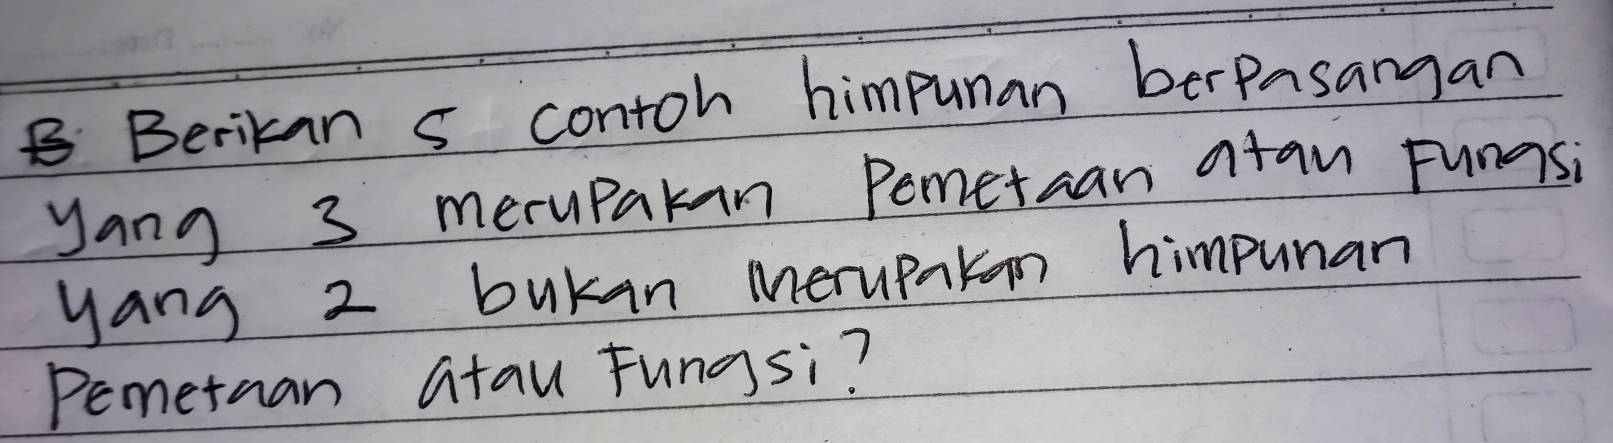 Berikan 5 contoh himpunan berpasangan
yang 3 merupakan Pemetaan atau Fungsi
yang 2 bukan merupakan himpunan
Pemetaan atau Fungsi?